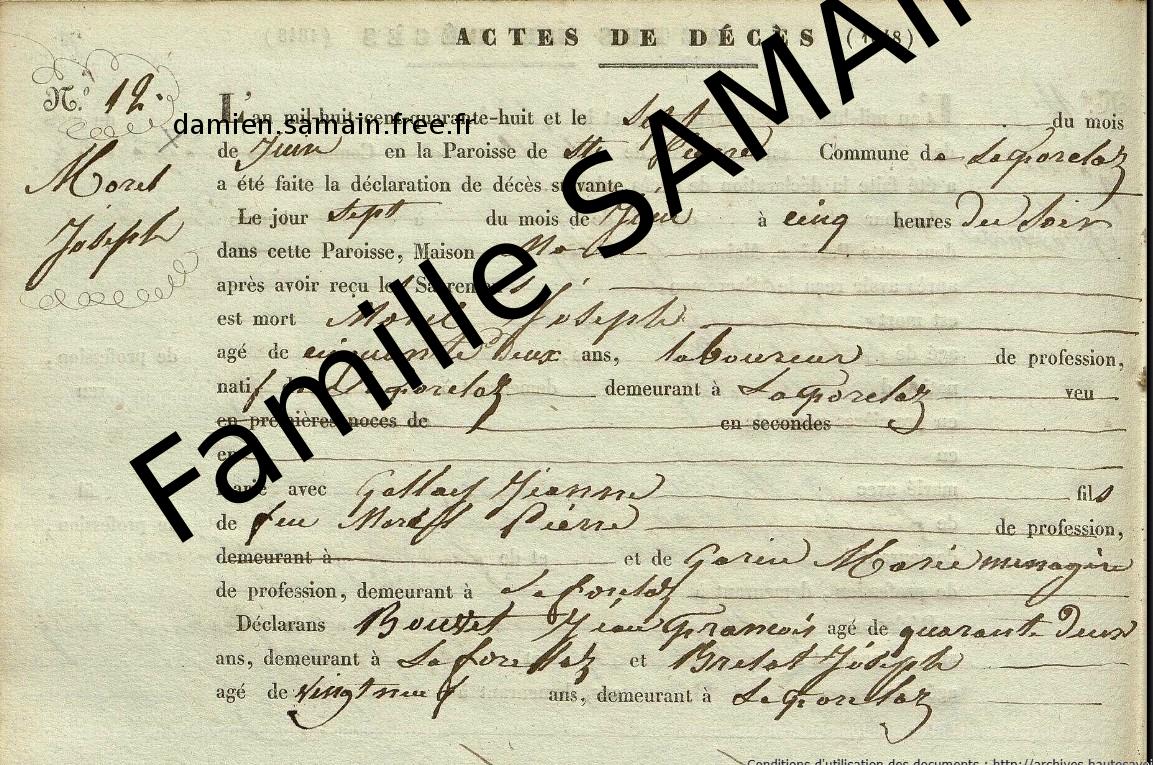 ACTES DE DÉCÈS (1848)
N.º 12.
damien.samain.free.fr
Morel
Joseph
L'an mil-huit-cent-quarante-huit et le sept du mois
de Juin en la Paroisse de St. Pierre Commune de La forclaz
a été faite la déclaration de décès suivante
Le jour sept du mois de Juin à cinq heures du Soir
dans cette Paroisse, Maison Morel
après avoir reçu les Sacremens
est mort Morel Joseph
agé de cinquante deux ans, laboureur de profession,
natif de La forclaz demeurant à La forclaz veu
en premières noces de en secondes
en
marié avec Jeanne fils
de feu Morel Pierre de profession,
demeurant à et de Garin Marie menagère
de profession, demeurant à La forclaz
Déclarans Bouvet Jean François agé de quarante Deux
ans, demeurant à La forclaz et Brelat Joseph
agé de vingt neuf ans, demeurant à La forclaz
Famille SAMAIN
Conditions d'utilisation des documents : http://archives.hautesavoi